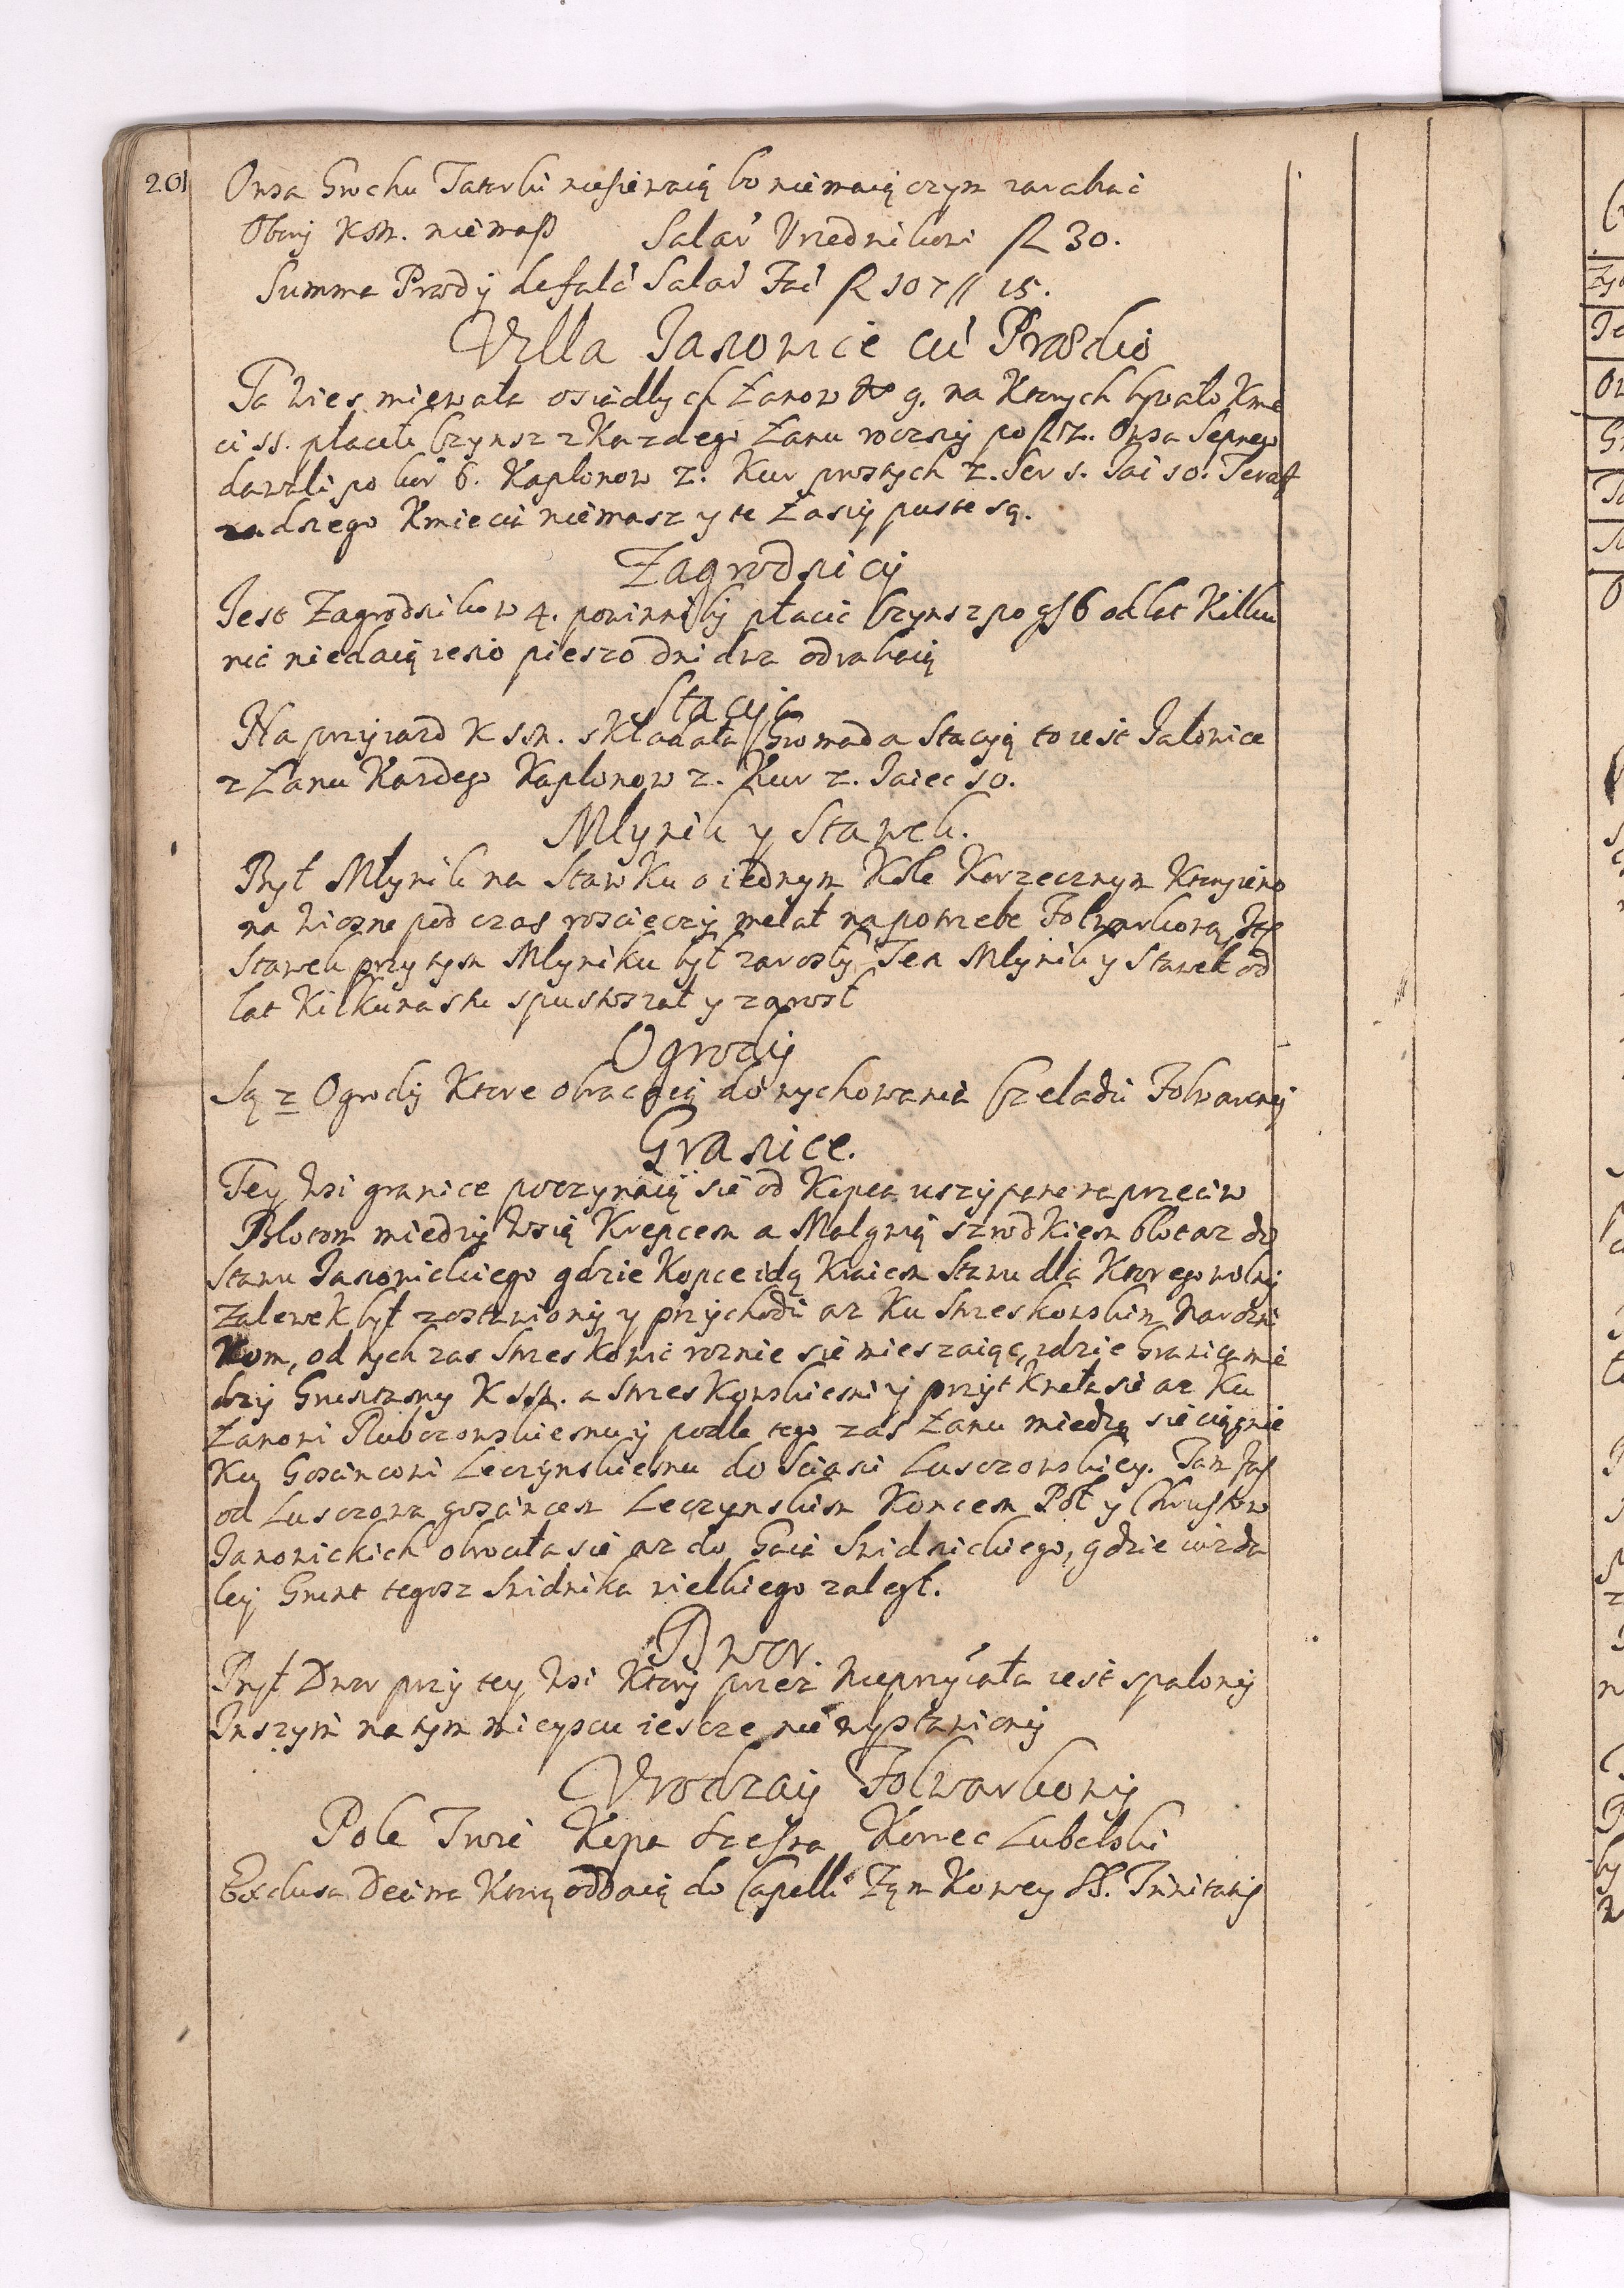 201
Owsa Grochu Tatarki niesiewaią bo niemaią czym zarabiać
Obory KSM. niemaß Salar Vrzednikowi fl 30.
Summa Prody defalc Salar Fac fl 107 // 15.
Villa Janowice cu Prædio
Ta Wies miewała osiadłych Łanow 9. na Ktorych bywało Kmie
ci 11. płaceli Czynsz z Kazdego Łanu roczny po fl 2. Owsa Sepnego
dawali po kor 6. Kapłonow 2. Kur prostych 2. Ser 1. Iai 10. Teraß
zadnego Kmiecia niemasz y te Łany puste są.
Zagrodnicy
Iest Zagrodnikow 4. powinniby płacic Czynsz po gß 6 od lat Kilku
nic niedaią ieno pieszo dni dwa odrabiaią
Stacyie
Na przyiazd K JM. składała Gromada Stacyą to iest Ialowice
z Łanu Kazdego Kapłonow 2. Kur 2. Iaiec 10.
Młynik y Stawek.
Był Młynik na Stawku o iednym Kole Korzecznym Ktory ieno
na Wiosne pod czas roscieczy mełał na potrzebe Folwarkową
Stawek przy tym Młyniku był zarosły Ten Młynik y Stawek od
lat Kilkunastu spustoszał y zarosł
Ogrody
Są 2 Ogrody Ktore obracaią do wychowania Czeladzi Folwarcznej
Granice.
Tey Wsi granice poczynaią się od Kopca uszypane naprzeciw
Błotom miedzy Wsią Krepcem a Malgwią szrodkiem błot az do
Stawu Janowickiego gdzie Kopce idą Kraiem Stawu dla Ktorego wolny
zalewek był zostawiony y przychodzi az Ku Streskowskim Narozni
Kom, od tych zas Streskowic roznie się mieszaiąc, idzie Granica mie
dzy Gruntamy K JM. a Streskowskiemi y przytkneła się az Ku
Łanowi Kubczowskiemu y podle tego zas Łanu miedzą się ciągnie
Ku Goscincowi Leczynskiemu do Sciany Lusczowskiey. Tam zaß
od Lusczowa goscincem Leczynskim Koncem Pol y Chrustow
Janowickich obrociła się az do Gaia Swidnickiego, gdzie iuż da
ley Grunt tegosz Swidnika wielkiego zaległ.
Dwor
Był Dwor przy tey Wsi Ktory przez Nieprzyiaciela iest spalony
Inszym na tym mieyscu iescze nie wystawiony
Vrodzay Folwarkowy
Pole Trzcie Kopa Korzec Lubelski
Exclusa Decima Ktorą oddaią do Capelli Zamkowey SS. Trinitatis